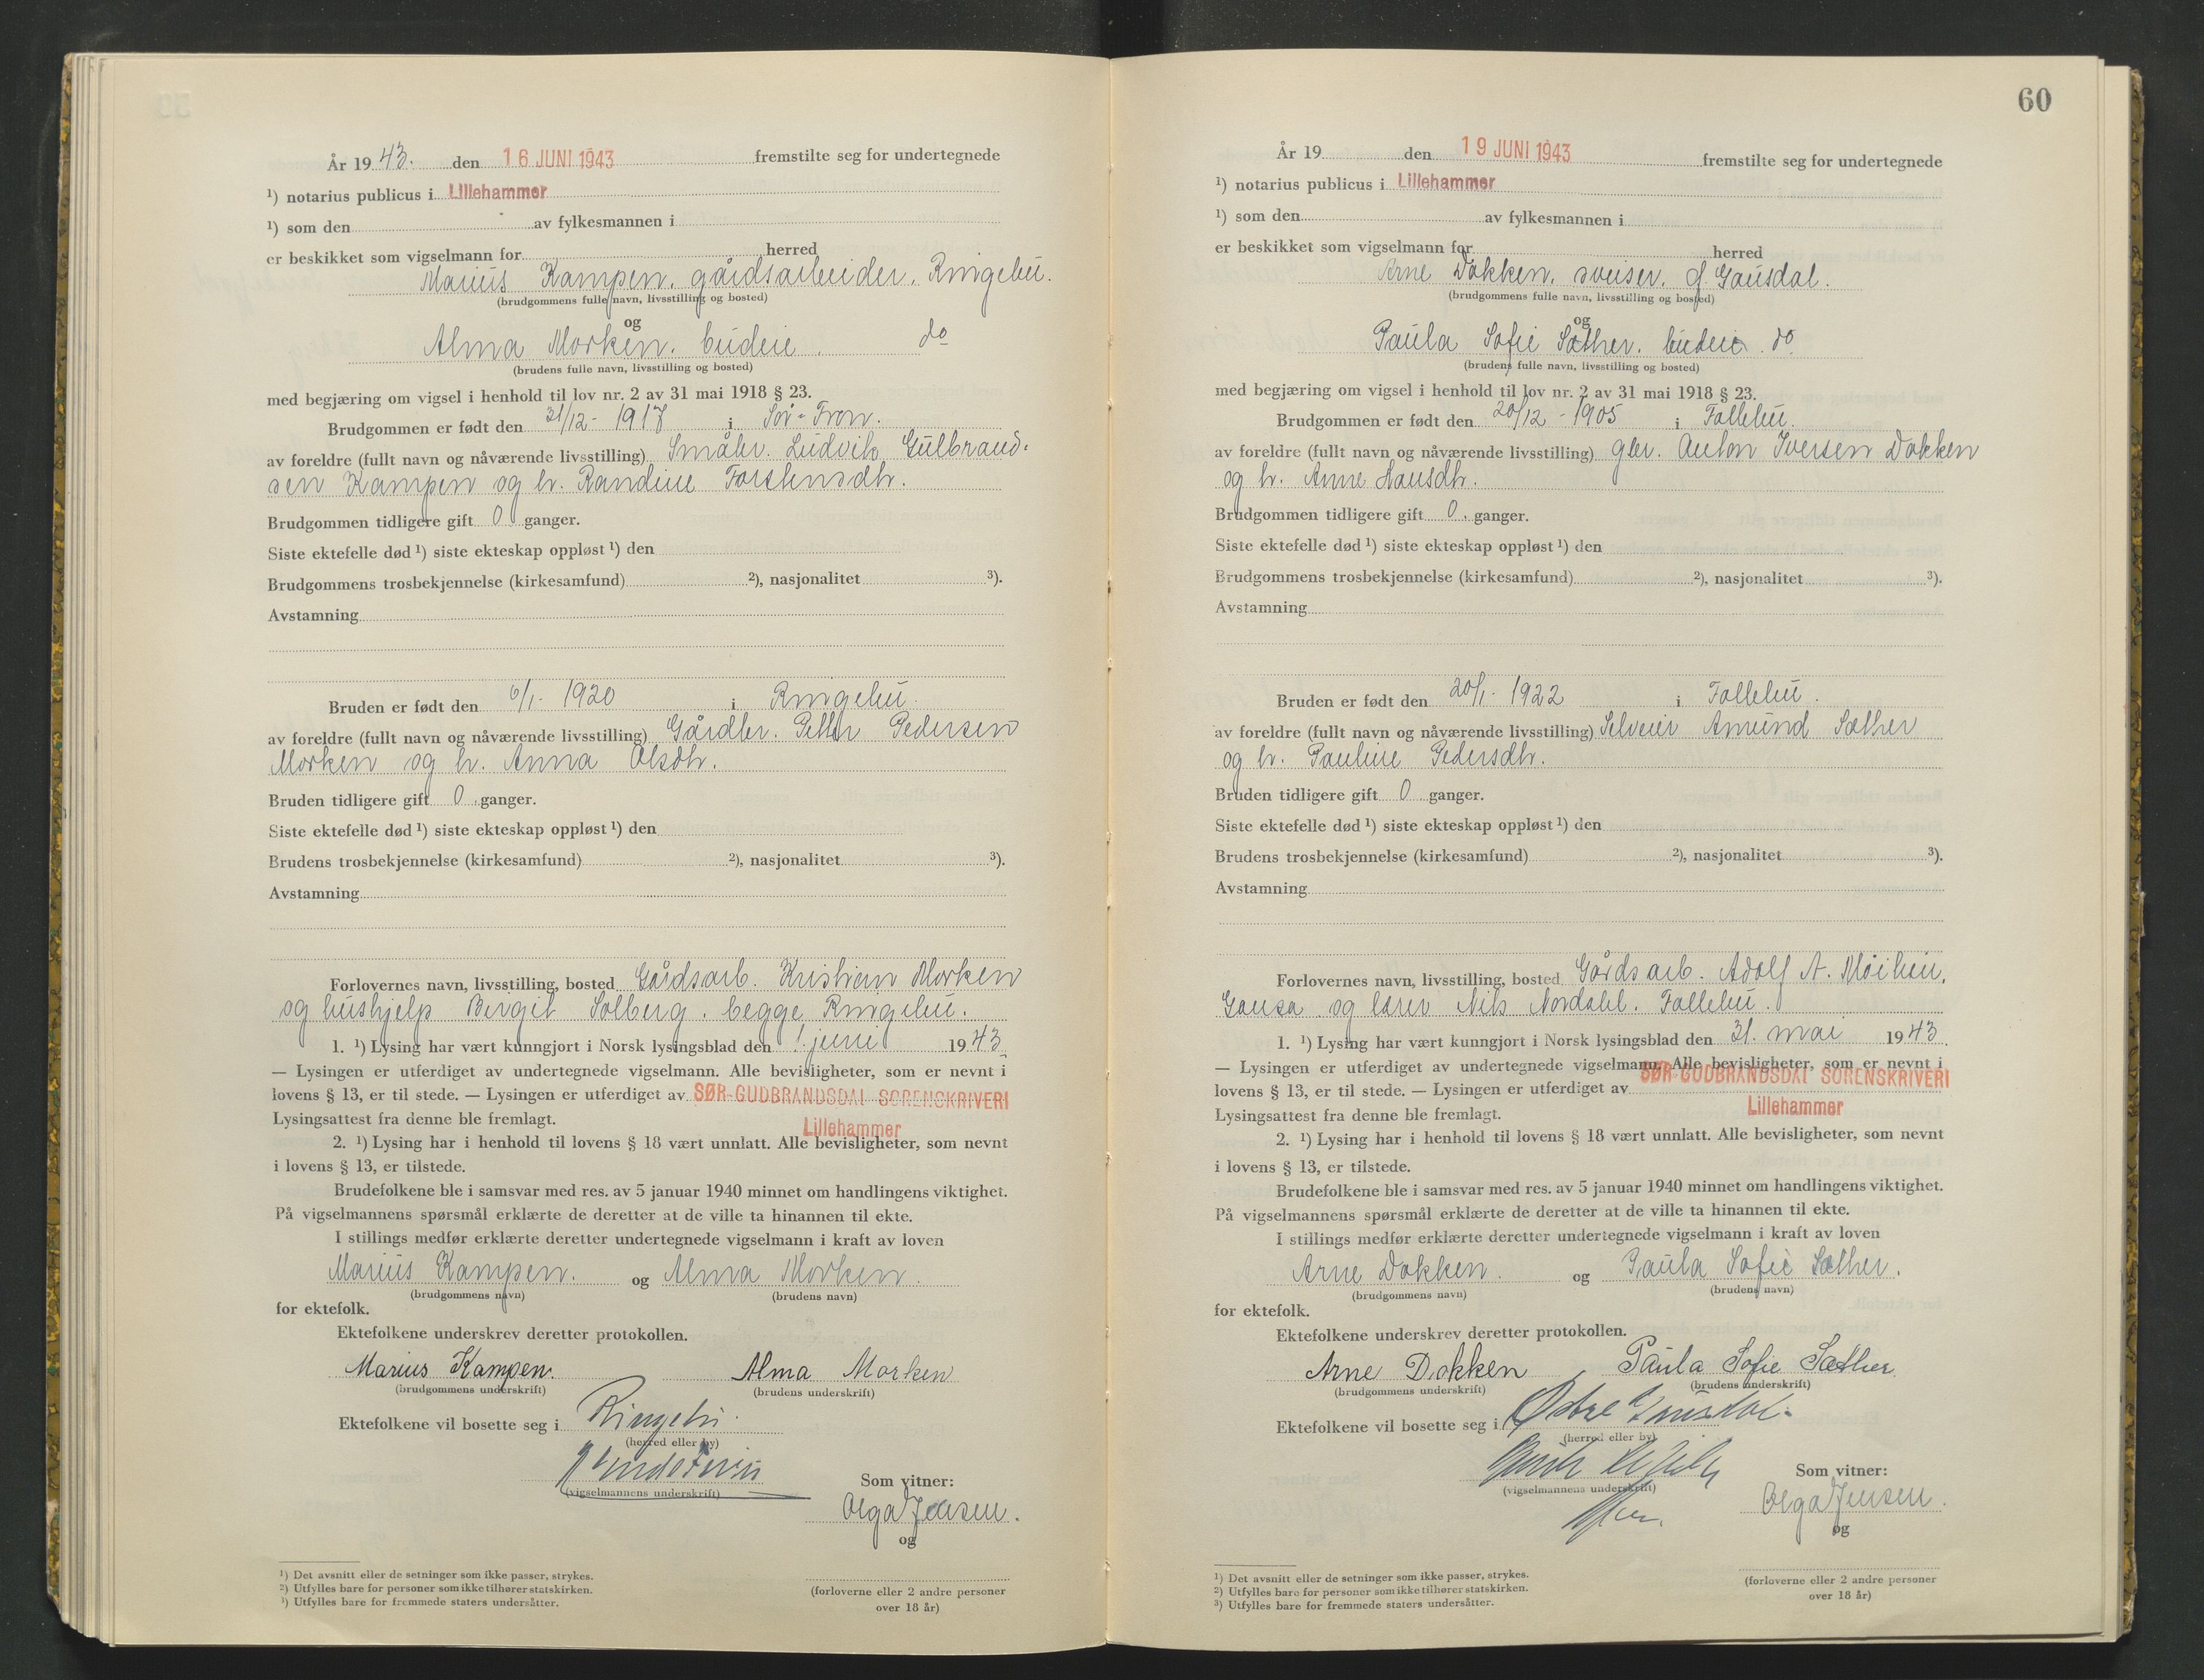 År 19 43. den 16 JUNI 1943 fremstilte seg for undertegnede
¹) notarius publicus i Lillehammer
¹) som den av fylkesmannen i
er beskikket som vigselmann for herred
Marius Kampen, gårdsarbeider, Ringebu.
(brudgommens fulle navn, livsstilling og bosted)
og
Alma Morken, budeie. do
(brudens fulle navn, livsstilling og bosted)
med begjæring om vigsel i henhold til lov nr. 2 av 31 mai 1918 § 23.
Brudgommen er født den 31/12 - 1917 i Sør-Fron.
av foreldre (fullt navn og nåværende livsstilling) Småbr. Ludvik Gulbrand-
sen Kampen og h. Randine Torstensdtr.
Brudgommen tidligere gift 0 ganger.
Siste ektefelle død ¹) siste ekteskap oppløst ¹) den
Brudgommens trosbekjennelse (kirkesamfund) ²), nasjonalitet ³).
Avstamning
Bruden er født den 6/1 - 1920 i Ringebu.
av foreldre (fullt navn og nåværende livsstilling) Gårdbr. Petter Pedersen
Morken og h. Anna Olsdtr.
Bruden tidligere gift 0 ganger.
Siste ektefelle død ¹) siste ekteskap oppløst ¹) den
Brudens trosbekjennelse (kirkesamfund) ²), nasjonalitet ³).
Avstamning
Forlovernes navn, livsstilling, bosted Gårdsarb. Kristian Morken
og hushjelp Birgit Solberg. begge Ringebu.
1. ¹) Lysing har vært kunngjort i Norsk lysingsblad den 1. juni 19 43
— Lysingen er utferdiget av undertegnede vigselmann. Alle bevisligheter, som er nevnt i
lovens § 13, er til stede. — Lysingen er utferdiget av SØR-GUDBRANDSDAL SORENSKRIVERI
Lysingsattest fra denne ble fremlagt.
Lillehammer
2. ¹) Lysing har i henhold til lovens § 18 vært unnlatt. Alle bevisligheter, som nevnt
i lovens § 13, er tilstede.
Brudefolkene ble i samsvar med res. av 5 januar 1940 minnet om handlingens viktighet.
På vigselmannens spørsmål erklærte de deretter at de ville ta hinannen til ekte.
I stillings medfør erklærte deretter undertegnede vigselmann i kraft av loven
Marius Kampen. og Alma Morken.
(brudgommens navn) (brudens navn)
for ektefolk.
Ektefolkene underskrev deretter protokollen.
Marius Kampen. Alma Morken
(brudgommens underskrift) (brudens underskrift)
Ektefolkene vil bosette seg i Ringebu.
(herred eller by)
(vigselmannens underskrift)
Som vitner:
Olga Jensen.
og
(forloverne eller 2 andre personer
over 18 år)
¹) Det avsnitt eller de setninger som ikke passer, strykes.
²) Utfylles bare for personer som ikke tilhører statskirken.
³) Utfylles bare for fremmede staters undersåtter.
60
År 19 den 19 JUNI 1943 fremstilte seg for undertegnede
¹) notarius publicus i Lillehammer
¹) som den av fylkesmannen i
er beskikket som vigselmann for herred
Arne Dokken, sveiser, Ø. Gausdal.
(brudgommens fulle navn, livsstilling og bosted)
og
Paula Sofie Sæther. budeie. do
(brudens fulle navn, livsstilling og bosted)
med begjæring om vigsel i henhold til lov nr. 2 av 31 mai 1918 § 23.
Brudgommen er født den 20/12 - 1905 i Follebu.
av foreldre (fullt navn og nåværende livsstilling) Gbr. Anton Iversen Dokken
og h. Anne Hansdtr.
Brudgommen tidligere gift 0. ganger.
Siste ektefelle død ¹) siste ekteskap oppløst ¹) den
Brudgommens trosbekjennelse (kirkesamfund) ²), nasjonalitet ³).
Avstamning
Bruden er født den 20/1 - 1922 i Follebu.
av foreldre (fullt navn og nåværende livsstilling) Selveier Amund Sæther
og h. Pauline Pedersdtr.
Bruden tidligere gift 0 ganger.
Siste ektefelle død ¹) siste ekteskap oppløst ¹) den
Brudens trosbekjennelse (kirkesamfund) ²), nasjonalitet ³).
Avstamning
Forlovernes navn, livsstilling, bosted Gårdsarb. Adolf A.
Gausa og Nils Nordahl. Follebu.
1. ¹) Lysing har vært kunngjort i Norsk lysingsblad den 31. mai 19 43.
— Lysingen er utferdiget av undertegnede vigselmann. Alle bevisligheter, som er nevnt i
lovens § 13, er til stede. — Lysingen er utferdiget av SØR-GUDBRANDSDAL SORENSKRIVERI
Lysingsattest fra denne ble fremlagt.
Lillehammer
2. ¹) Lysing har i henhold til lovens § 18 vært unnlatt. Alle bevisligheter, som nevnt
i lovens § 13, er tilstede.
Brudefolkene ble i samsvar med res. av 5 januar 1940 minnet om handlingens viktighet.
På vigselmannens spørsmål erklærte de deretter at de ville ta hinannen til ekte.
I stillings medfør erklærte deretter undertegnede vigselmann i kraft av loven
Arne Dokken. og Paula Sofie Sæther.
(brudgommens navn) (brudens navn)
for ektefolk.
Ektefolkene underskrev deretter protokollen.
Arne Dokken Paula Sofie Sæther
(brudgommens underskrift) (brudens underskrift)
Ektefolkene vil bosette seg i Østre Gausdal.
(herred eller by)
(vigselmannens underskrift)
Som vitner:
Olga Jensen.
og
(forloverne eller 2 andre personer
over 18 år)
¹) Det avsnitt eller de setninger som ikke passer, strykes.
²) Utfylles bare for personer som ikke tilhører statskirken.
³) Utfylles bare for fremmede staters undersåtter.